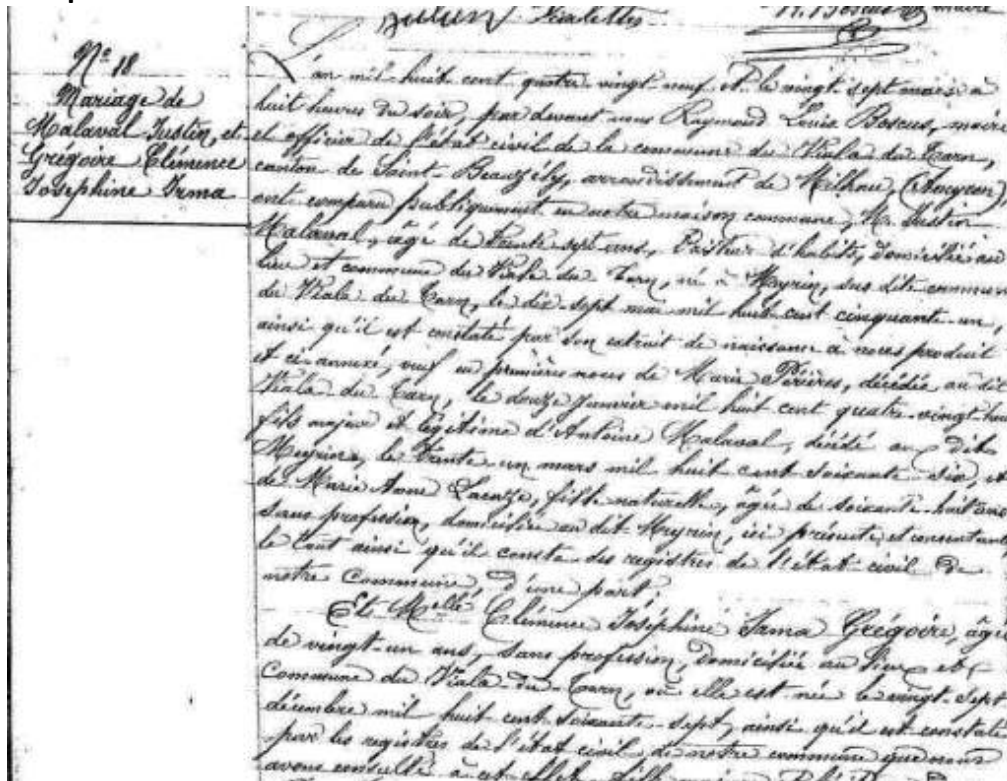 Julien Violettes
Nº 18
Mariage de
Malaval Justin, et
Grégoire Clémence
Josephine Irma
L'an mil huit cent quatre vingt neuf et le vingt sept mai à
huit heures du soir, par devant nous Raymond Louis Boscus, maire
et officier de l'état civil de la commune du Viala du Tarn,
canton de Saint-Beauzély, arrondissement de Milhau, (Aveyron)
ont comparu publiquement en notre maison commune, M. Justin
Malaval, âgé de trente sept ans, d'habits, domicilié au
lieu et commune du Viala du Tarn, né à Meyrin, sus dite commune
du Viala du Tarn, le dix-sept mai mil huit cent cinquante-un,
ainsi qu'il est constaté par son extrait de naissance à nous produit
et ci-annexé, veuf en premières noces de Marie Périères, décédée au dit
Viala du Tarn, le douze Janvier mil huit cent quatre-vingt-
fils majeur et légitime d'Antoine Malaval, décédé au dit
le trente un mars mil huit cent soixante six, et
de Marie Anne Lacaze, fille naturelle, âgée de soixante-huit ans
sans profession, domiciliée au dit Meyrin, ici présente et consentante
le tout ainsi qu'il conste des registres de l'état civil de
notre Commune, d'une part;
Et Melle Clémence Joséphine Irma Grégoire, âgée
de vingt-un ans, sans profession, domiciliée au lieu et
Commune du Viala-du-Tarn, où elle est née le vingt-sept
décembre mil huit cent soixante-sept, ainsi qu'il est constaté
par les registres de l'état civil de notre commune que nous
avons consulté à cet effet, fille